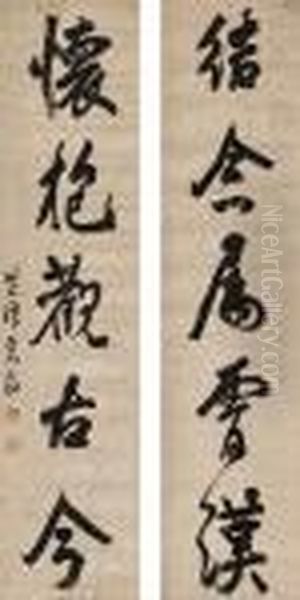 结念属霄漢
懷抱觀古今
NiceArtGallery.com